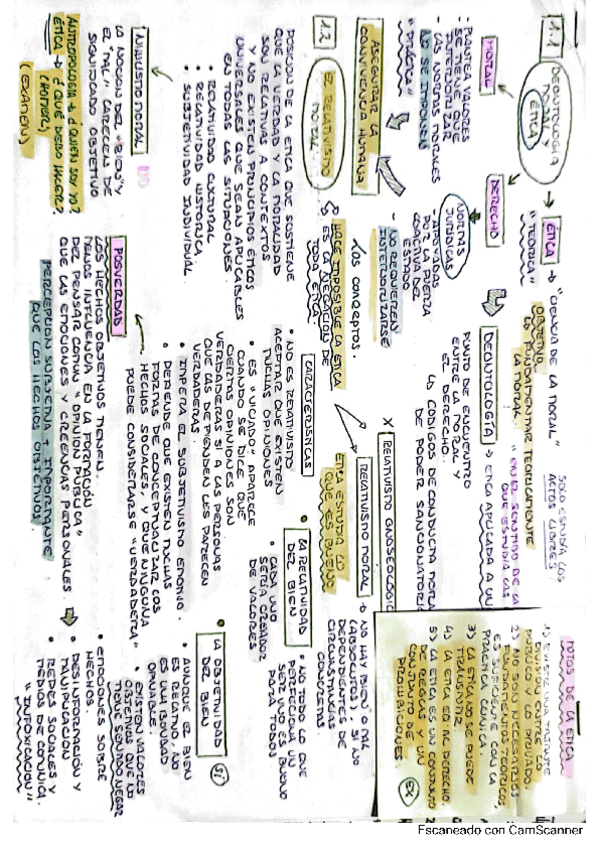 1.1 DEONTOLOGIA
Y
ÉTICA
MORAL
· PLANTEA VALORES
· SE TIENEN QUE
INTERIORIZAR
· LAS NORMAS MORALES
NO SE IMPONEN
"PRÁCTICA"
ASEGURAR LA
CONVIVENCIA HUMANA
DERECHO
NORMAS
JURÍDICAS
APOYADAS
POR LA FUERZA
COACTIVA DEL
ESTADO
- NO REQUIEREN
INTERIORIZARSE
LOS CONCEPTOS.
ÉTICA → "CIENCIA DE LA MORAL"
"TEÓRICA"
OBJETIVO
LO FUNDAMENTAR TEÓRICAMENTE
LA MORAL.
SOLO ESTUDIA LOS
ACTOS LIBRES
DEONTOLOGÍA → ÉTICA APLICADA A
PUNTO DE ENCUENTRO
ENTRE LA MORAL Y
EL DERECHO.
CÓDIGOS DE CONDUCTA
DE PODER
MITOS DE LA ÉTICA
1) EXISTE UNA TAJANTE
DIVISIÓN ENTRE LO
PÚBLICO Y LO PRIVADO.
2) NO SON NECESARIOS
FUNDAMENTOS TEÓRICOS
ES SUFICIENTE CON LA
PRÁCTICA
3) LA ÉTICA NO SE PUEDE
TRANSMITIR
4) LA ÉTICA ES AL DERECHO.
5) LA ÉTICA ES UN CONJUNTO
DE REGLAS, UN
CONJUNTO DE
PROHIBICIONES.
1.2 EL RELATIVISMO
MORAL
POSICIÓN DE LA ÉTICA QUE SOSTIENE
QUE LA VERDAD Y LA MORALIDAD
SON RELATIVAS A CONTEXTOS
Y NO EXISTEN PRINCIPIOS ÉTICOS
UNIVERSALES QUE SEAN APLICABLES
EN TODAS LAS SITUACIONES
• RELATIVIDAD CULTURAL
• RELATIVIDAD HISTÓRICA
• SUBJETIVIDAD INDIVIDUAL
HACE IMPOSIBLE LA ÉTICA
ES LA NEGACIÓN DE
TODA ÉTICA.
RELATIVISMO GNOSEOLÓGICO
RELATIVISMO MORAL → NO HAY BIEN O MAL
(ABSOLUTOS), SI NO
DEPENDIENTES DE
CIRCUNSTANCIAS
CONCRETAS
ÉTICA ESTUDIA LO
QUE ES BUENO
CARACTERÍSTICAS
• NO ES RELATIVISMO
ACEPTAR QUE EXISTEN
MUCHAS OPINIONES
• ES "VICIADO" APARECE
CUANDO SE DICE QUE
CIERTAS OPINIONES SON
VERDADERAS SI A LAS PERSONAS
QUE LAS DEFIENDEN LES PARECEN
VERDADERAS.
• IMPERA EL SUBJETIVISMO EMOTIVO.
• DEFIENDE QUE EXISTEN MUCHAS
FORMAS DE CONCEPTUALIZAR LOS
HECHOS SOCIALES, Y QUE NINGUNA
PUEDE CONSIDERARSE "VERDADERA"
LA RELATIVIDAD
DEL BIEN
• CADA UNO
SERÍA CREADOR
DE VALORES
• NO TODO LO QUE
PERCIBE UN
SER HUMANO ES BUENO
PARA TODOS
LA OBJETIVIDAD
DEL BIEN
• AUNQUE EL BIEN
ES RELATIVO, NO
ES UNA BONDAD
OPINABLE.
• EXISTEN VALORES
OBJETIVOS QUE LO
SIGUE SIENDO
NIHILISMO MORAL
LA NOCIÓN DEL "BIEN" Y
EL "MAL" CARECEN DE
SIGNIFICADO OBJETIVO
ANTROPOLOGÍA → ¿QUIÉN SOY YO?
ÉTICA → ¿QUÉ DEBO HACER?
(EXAMEN)
POSVERDAD
LOS HECHOS OBJETIVOS TIENEN
MENOS INFLUENCIA EN LA FORMACIÓN
DEL PENSAR COMÚN "OPINIÓN PÚBLICA"
QUE LAS EMOCIONES Y CREENCIAS PERSONALES
PERCEPCIÓN SUBJETIVA + IMPORTANTE
QUE LOS HECHOS OBJETIVOS
• EMOCIONES SOBRE
HECHOS.
• DESINFORMACIÓN Y
MANIPULACIÓN
• REDES SOCIALES Y
MEDIOS DE COMUNICA.
"INTOXICACIÓN"
Escaneado con CamScanner